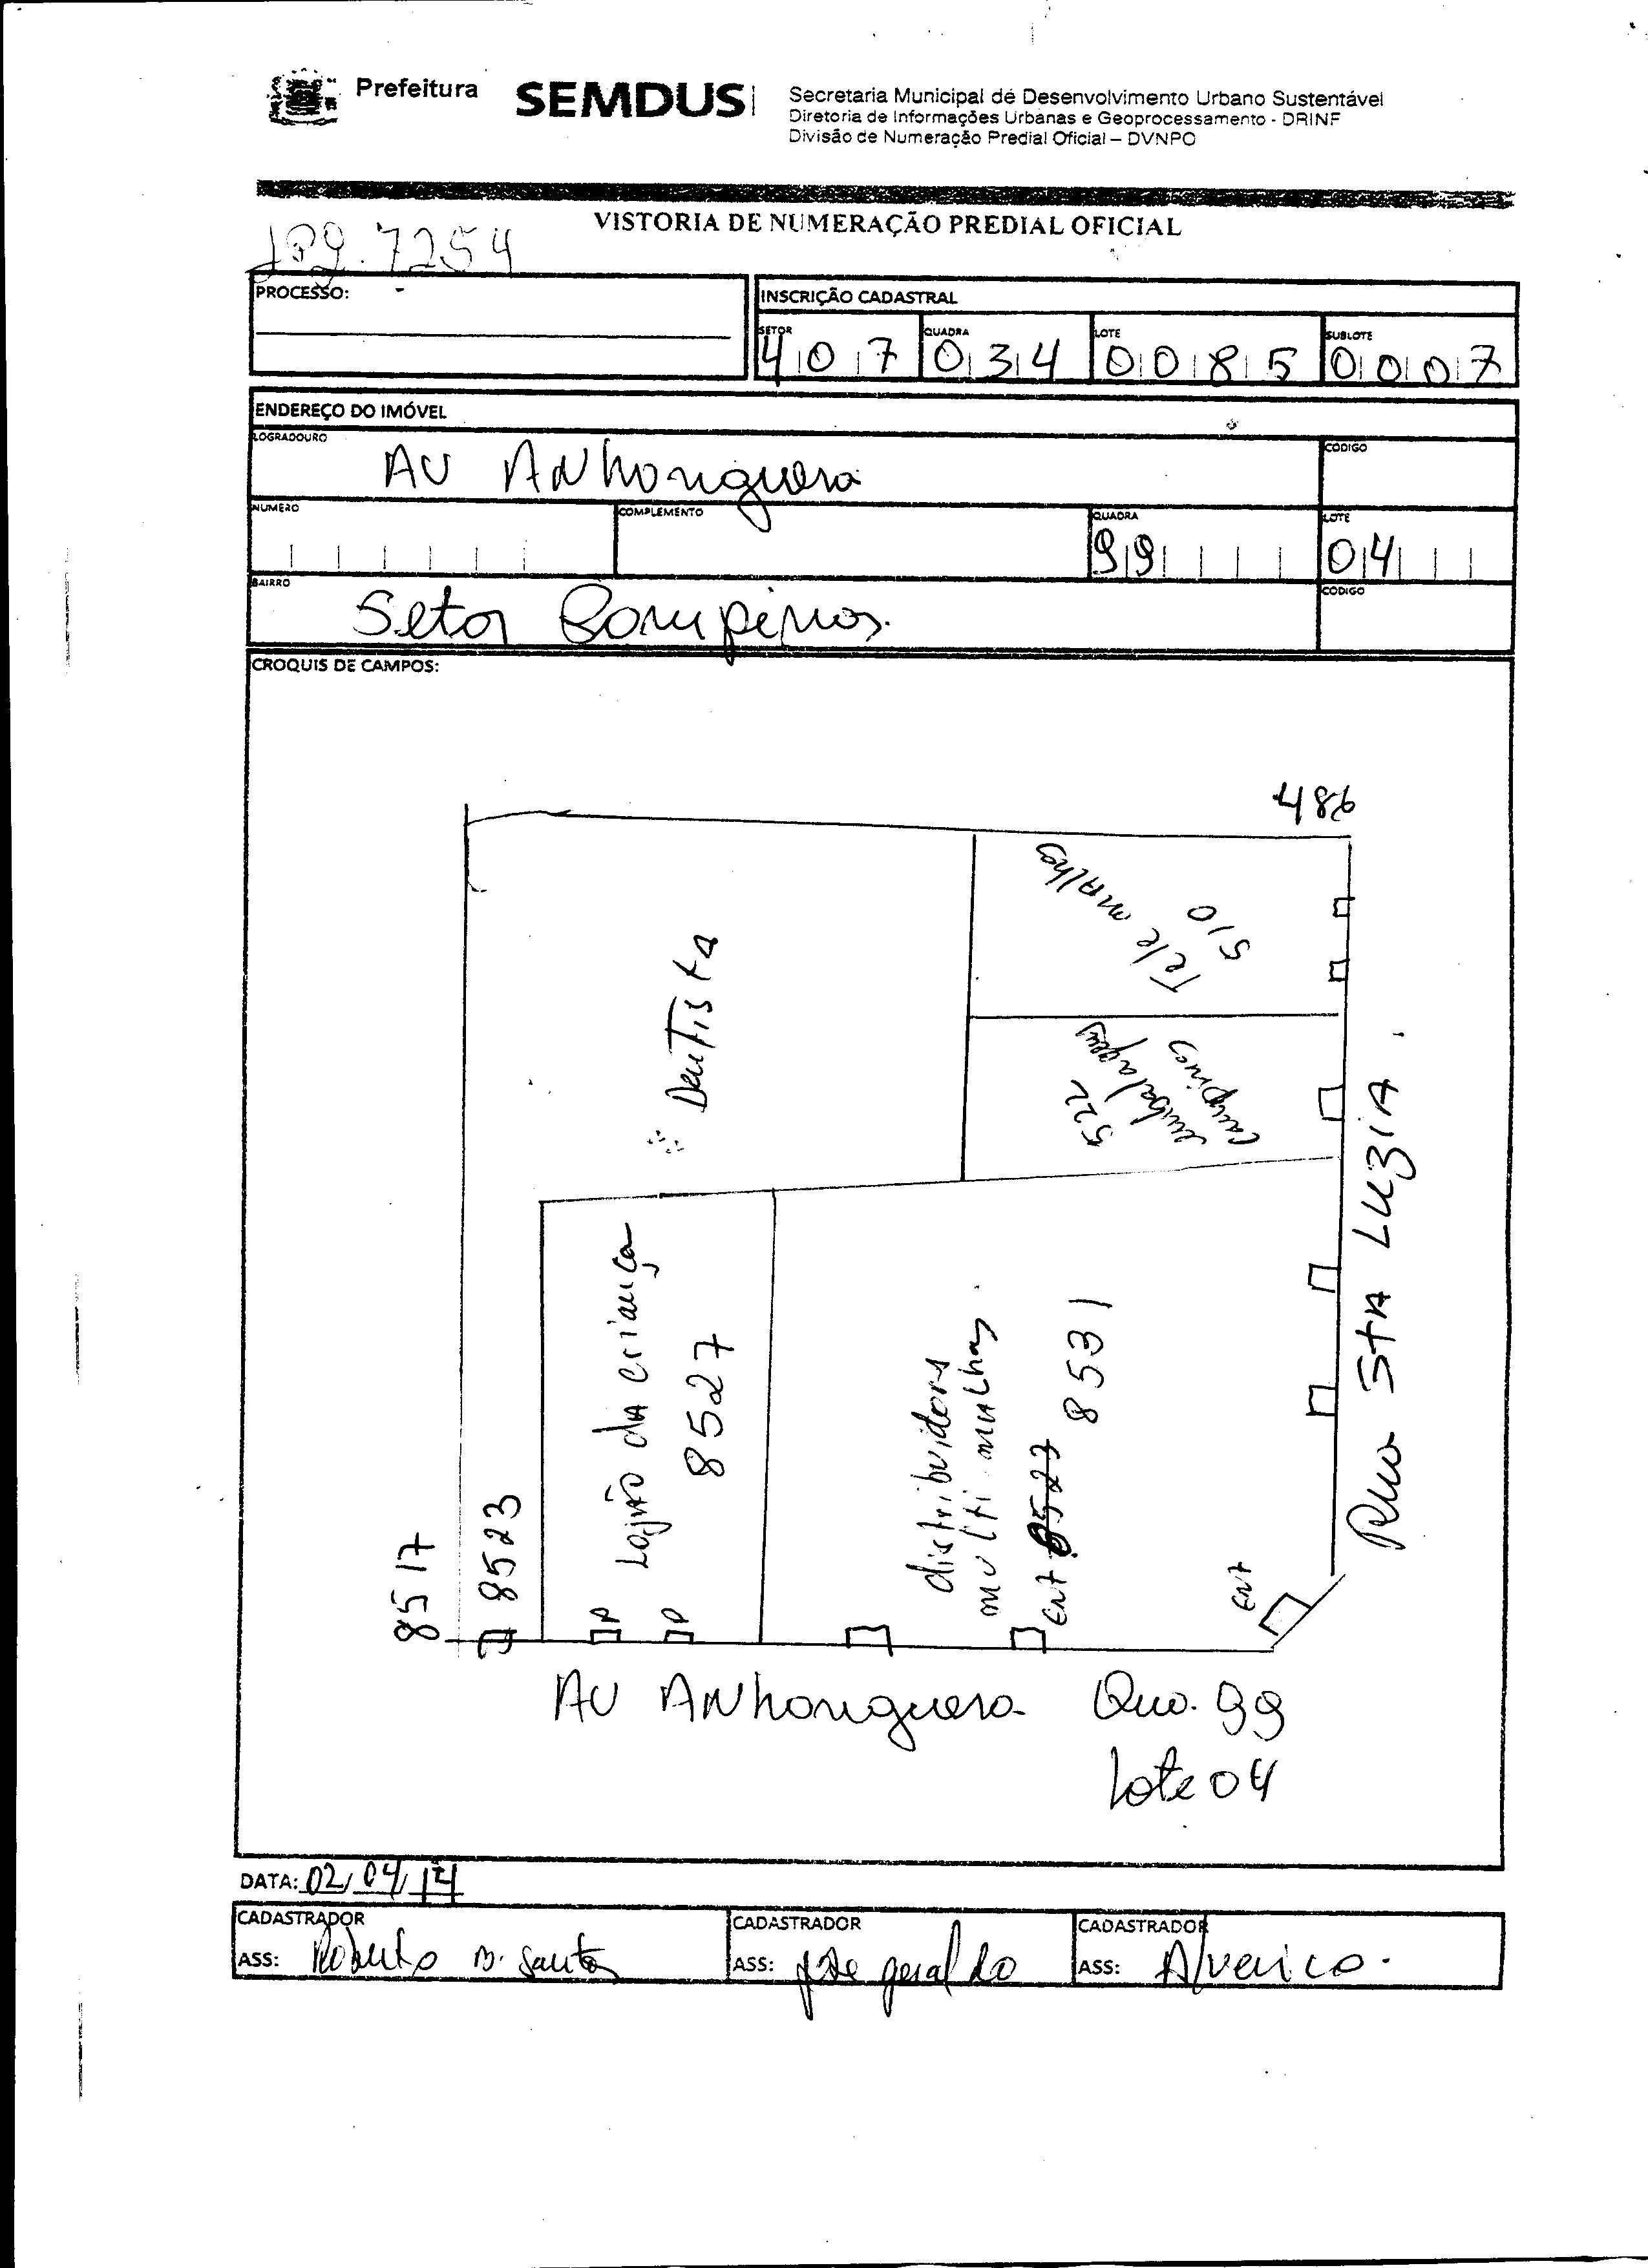 Prefeitura
SEMDUS
Secretaria Municipal de Desenvolvimento Urbano Sustentável
Diretoria de Informações Urbanas e Geoprocessamento - DRINF
Divisão de Numeração Predial Oficial – DVNPO
VISTORIA DE NUMERAÇÃO PREDIAL OFICIAL
7254
PROCESSO:
INSCRIÇÃO CADASTRAL
SETOR QUADRA LOTE SUBLOTE
407 034 0085 0007
ENDEREÇO DO IMÓVEL
LOGRADOURO
AV ANhanguera
CÓDIGO
NUMERO COMPLEMENTO QUADRA LOTE
99 04
BAIRRO
Setor Campinas.
CÓDIGO
CROQUIS DE CAMPOS:
486
Tele malhas
510
Dentista
522
embalagens
campinas
Rua STA LUZIA
Lojão da criança
8527
distribuidora
multi malhas
ENT 8523 8531
ENT
8517
8523
P
P
AV ANhanguera Qua. 99
Lote 04
DATA: 02/04/14
CADASTRADOR
ASS: Roberto B. Santos
CADASTRADOR
ASS: José geraldo
CADASTRADOR
ASS: Alverico.